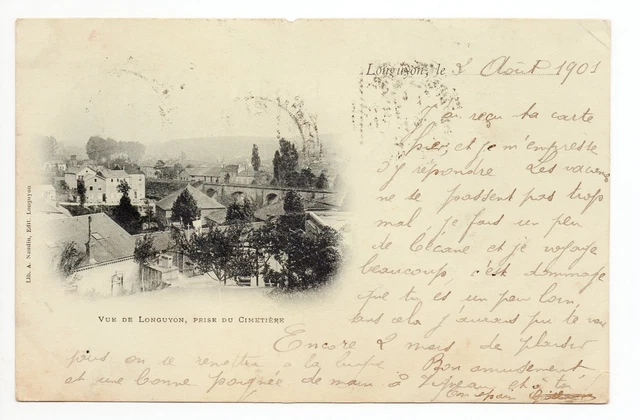 Longuyon, le 3 Août 1901
J'ai reçu ta carte
hier, et je m'empresse
d'y répondre Les vacances
ne se passent pas trop
mal je fais un peu
de bécane et je voyage
beaucoup, c'est dommage
que tu es un peu loin,
sans cela j'aurais pu te voir
Encore 2 mois de plaisir
puis on se remettra à la Bon amusement
et une bonne poignée de main à et à toi
Ton copain
VUE DE LONGUYON, PRISE DU CIMETIÈRE
Lib. A. Édit. Longuyon